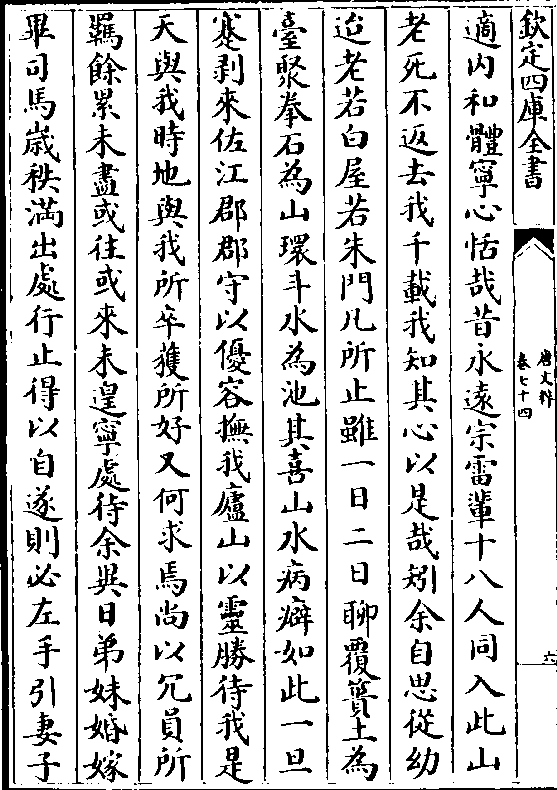 欽定四庫全書
唐文粹
卷七十四
六
適内和體寧心恬哉昔永遠宗雷輩十八人同入此山
老死不返去我千載我知其心以是哉矧余自思從幼
迨老若白屋若朱門凡所止雖一日二日聊覆簣土為
臺聚拳石為山環斗水為池其喜山水病癖如此一旦
蹇剥來佐江郡郡守以優容撫我廬山以靈勝待我是
天與我時地與我所卒獲所好又何求焉尚以冗員所
羈餘累未盡或往或來未遑寧處待余異日弟妹婚嫁
畢司馬歲秩滿出處行止得以自遂則必左手引妻子